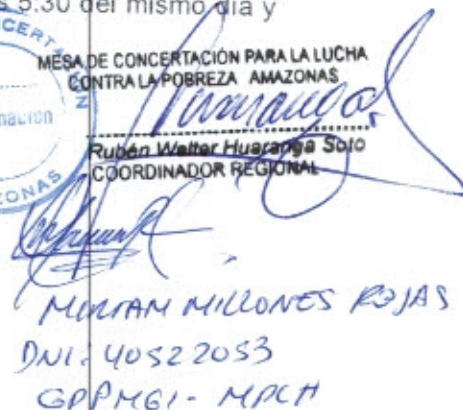 5:30 del mismo día y
MESA DE CONCERTACIÓN PARA LA LUCHA
CONTRA LA POBREZA AMAZONAS
Rubén Walter Huaranga Soto
COORDINADOR REGIONAL
MIRIAM MILLONES ROJAS
DNI: 40522053
GPPMGI - MPCH